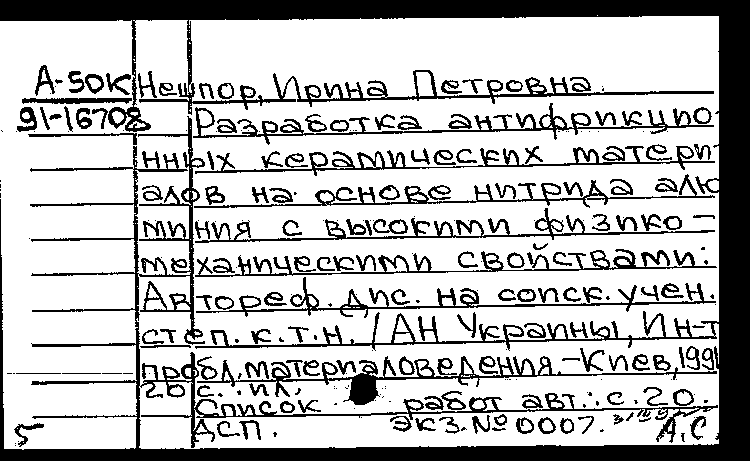 А-50К Нешпор, Ирина Петровна.
91-16708 Разработка антифрикцио-
нных керамических матери-
алов на основе нитрида алю
миния с высокими физико-
механическими свойствами:
Автореф. дис. на соиск. учен.
степ. к.т.н. /АН Украины, Ин-т
пробл. материаловедения.-Киев, 1991
20 с. : ил.
Список работ авт.: с. 20.
5 ДСП. Экз. № 0007.
А.С